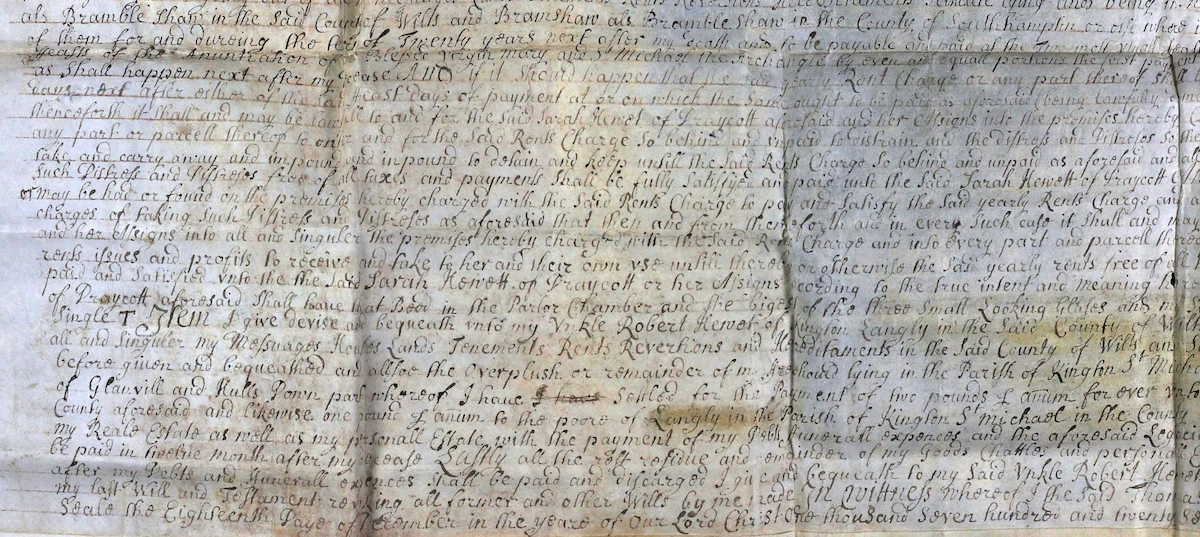 als Bramble Shaw in the Said County of Wilts and Bramshaw als Bramble Shaw in the County of Southhampton or
of them for and dureing the of Twenty years next after my and to be payable and paid at the
of the Anuntiation of Blessed Virgin Mary and St Michael the Archangle by even and equall portions the first
as Shall happen next after my And if it Should happen that the Said yearly Rent Charge or any part thereof
days next after either of the Said days of payment at or on which the Same ought to be paid as aforesaid (being Lawfully
thenceforth it Shall and may be to and for the Said Sarah Hewet of Draycott aforesaid and her Assigns into the premises hereby
any part or parcell thereof to and for the Said Rent Charge So behind and unpaid to distrain and the distress and Distreses So
take and carry away and impound and in pound to detain and keep untill the Said Rent Charge So behind and unpaid as aforesaid and
Such Distress and Distreses free of all taxes and payments Shall be fully Satisfyed and paid unto the Said Sarah Hewett of Draycott
or may be had or found on the premises hereby charged with the Said Rent Charge to pay and Satisfy the Said yearly Rent Charge and
charges of taking Such Distress and Distreses as aforesaid that then and from thenceforth and in every Such case it Shall and may
and her Assigns into all and Singuler the premises hereby charged with the Said Rent Charge and into every part and parcell
rents issues and profits to receive and take to her and their own use untill or otherwise the Said yearly rents free of all
paid and Satisfied unto the Said Sarah Hewett of Draycott or her Assigns according to the true intent and meaning
of Draycott aforesaid Shall have that Bedd in the Parlor Chamber and the bigest of the three Small Looking Glases and
Single T Item I give devise and bequeath unto my Unkle Robert Hewet of Kington Langly in the Said County of Wilts
all and Singuler my Messuages Houses Lands Tenements Rents Revertions and Hereditaments in the Said County of Wilts and
before given and bequeathed and allsoe the Overplush or remainder of my lying in the Parish of Kington St
of Glanvill and Hulls Down part whereof I have I have Setled for the Payment of two pounds anum for ever
County aforesaid and likewise one pound anum to the poore of Langly in the Parish of Kington St michael in the County
my Reale Estate as well as my personall Estate with the payment of my Debts Funerall expences and the aforesaid
be paid in twelve month after my decease Lastly all the residue and remainder of my Goods Chattles and
after my Debts and Funerall expences Shall be paid and discarged I give and bequeath to my Said Unkle Robert
my last Will and Testament revoking all former and other Wills by me made In Witness whereof I the Said
Seale the Eighteenth Daye of December in the yeare of Our Lord Christ One thousand Seven hundred and twenty